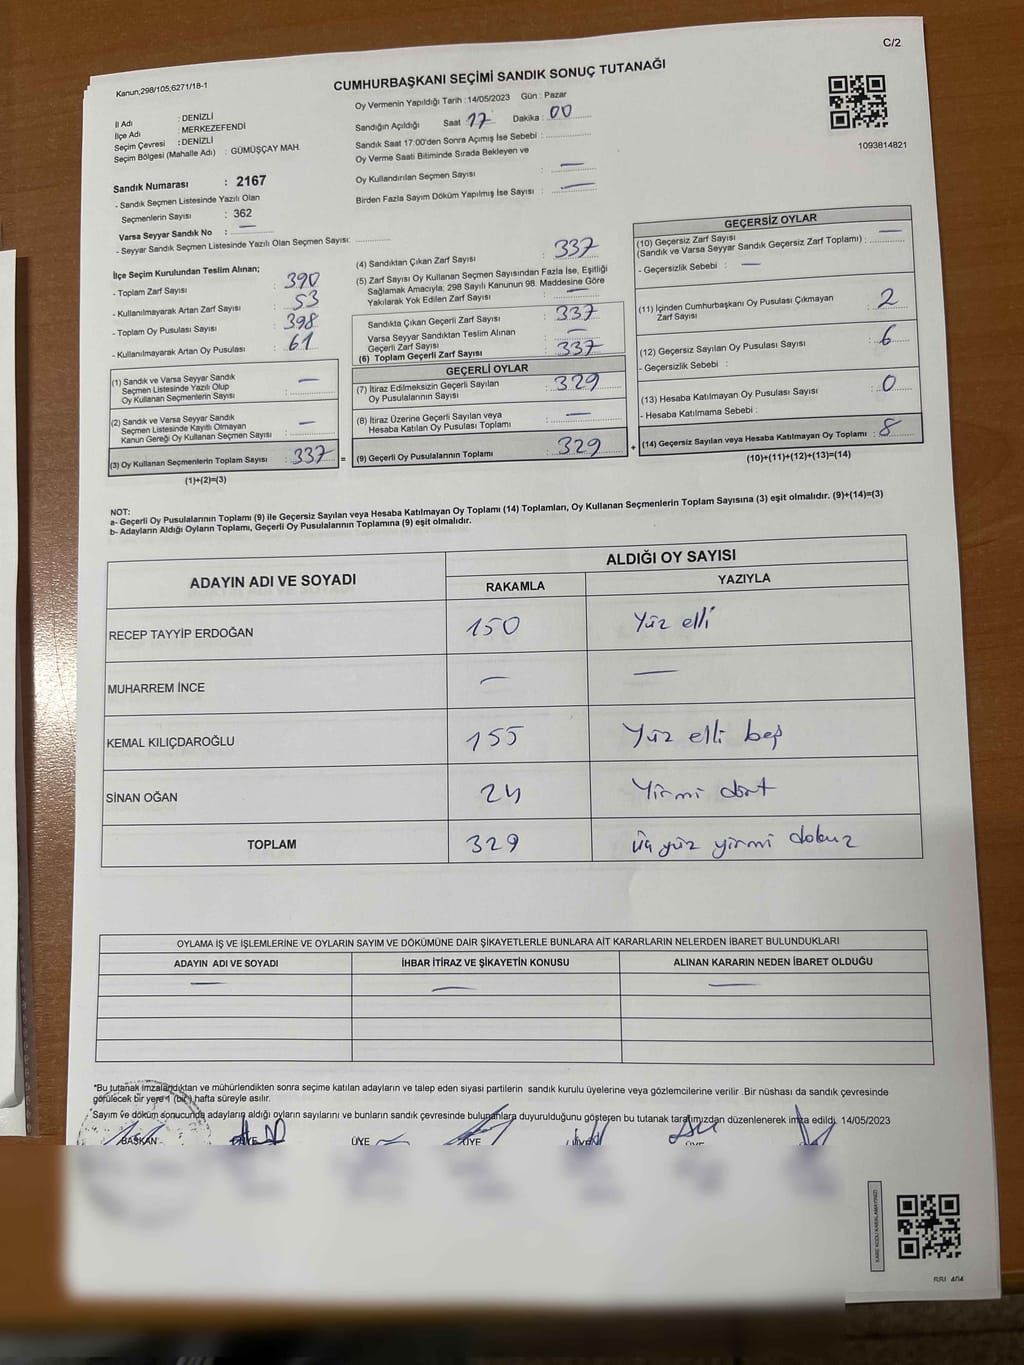 C/2
Kanun;298/105,6271/18-1
CUMHURBAŞKANI SEÇİMİ SANDIK SONUÇ TUTANAĞI
Oy Vermenin Yapıldığı Tarih : 14/05/2023 Gün : Pazar
İl Adı : DENİZLİ
İlçe Adı : MERKEZEFENDİ
Seçim Çevresi : DENİZLİ
Seçim Bölgesi (Mahalle Adı) : GÜMÜŞÇAY MAH.
Sandığın Açıldığı Saat 17 Dakika : 00
Sandık Saat 17:00'den Sonra Açımış İse Sebebi :
Oy Verme Saati Bitiminde Sırada Bekleyen ve
Oy Kullandırılan Seçmen Sayısı : —
Birden Fazla Sayım Döküm Yapılmış İse Sayısı : —
1093814821
Sandık Numarası : 2167
- Sandık Seçmen Listesinde Yazılı Olan
Seçmenlerin Sayısı : 362
Varsa Seyyar Sandık No : —
- Seyyar Sandık Seçmen Listesinde Yazılı Olan Seçmen Sayısı:
İlçe Seçim Kurulundan Teslim Alınan;
- Toplam Zarf Sayısı : 390
- Kullanılmayarak Artan Zarf Sayısı : 53
- Toplam Oy Pusulası Sayısı : 398
- Kullanılmayarak Artan Oy Pusulası : 61
(1) Sandık ve Varsa Seyyar Sandık
Seçmen Listesinde Yazılı Olup
Oy Kullanan Seçmenlerin Sayısı : —
(2) Sandık ve Varsa Seyyar Sandık
Seçmen Listesinde Kayıtlı Olmayan
Kanun Gereği Oy Kullanan Seçmen Sayısı : —
(3) Oy Kullanan Seçmenlerin Toplam Sayısı : 337 =
(1)+(2)=(3)
(4) Sandıktan Çıkan Zarf Sayısı : 337
(5) Zarf Sayısı Oy Kullanan Seçmen Sayısından Fazla İse, Eşitliği
Sağlamak Amacıyla, 298 Sayılı Kanunun 98. Maddesine Göre
Yakılarak Yok Edilen Zarf Sayısı : —
Sandıkta Çıkan Geçerli Zarf Sayısı : 337
Varsa Seyyar Sandıktan Teslim Alınan
Geçerli Zarf Sayısı : —
(6) Toplam Geçerli Zarf Sayısı : 337
GEÇERLİ OYLAR
(7) İtiraz Edilmeksizin Geçerli Sayılan
Oy Pusulalarının Sayısı : 329
(8) İtiraz Üzerine Geçerli Sayılan veya
Hesaba Katılan Oy Pusulası Toplamı : —
(9) Geçerli Oy Pusulalarının Toplamı : 329 +
GEÇERSİZ OYLAR
(10) Geçersiz Zarf Sayısı
(Sandık ve Varsa Seyyar Sandık Geçersiz Zarf Toplamı) : —
- Geçersizlik Sebebi : —
(11) İçinden Cumhurbaşkanı Oy Pusulası Çıkmayan
Zarf Sayısı : 2
(12) Geçersiz Sayılan Oy Pusulası Sayısı : 6
- Geçersizlik Sebebi :
(13) Hesaba Katılmayan Oy Pusulası Sayısı : 0
- Hesaba Katılmama Sebebi :
(14) Geçersiz Sayılan veya Hesaba Katılmayan Oy Toplamı : 8
(10)+(11)+(12)+(13)=(14)
NOT:
a- Geçerli Oy Pusulalarının Toplamı (9) ile Geçersiz Sayılan veya Hesaba Katılmayan Oy Toplamı (14) Toplamları, Oy Kullanan Seçmenlerin Toplam Sayısına (3) eşit olmalıdır. (9)+(14)=(3)
b- Adayların Aldığı Oyların Toplamı, Geçerli Oy Pusulalarının Toplamına (9) eşit olmalıdır.
ADAYIN ADI VE SOYADI ALDIĞI OY SAYISI
RAKAMLA YAZIYLA
RECEP TAYYİP ERDOĞAN 150 Yüz elli
MUHARREM İNCE — —
KEMAL KILIÇDAROĞLU 155 Yüz elli beş
SİNAN OĞAN 24 Yirmi dört
TOPLAM 329 üç yüz yirmi dokuz
OYLAMA İŞ VE İŞLEMLERİNE VE OYLARIN SAYIM VE DÖKÜMÜNE DAİR ŞİKAYETLERLE BUNLARA AİT KARARLARIN NELERDEN İBARET BULUNDUKLARI
ADAYIN ADI VE SOYADI İHBAR İTİRAZ VE ŞİKAYETİN KONUSU ALINAN KARARIN NEDEN İBARET OLDUĞU
— — —
*Bu tutanak imzalandıktan ve mühürlendikten sonra seçime katılan adayların ve talep eden siyasi partilerin sandık kurulu üyelerine veya gözlemcilerine verilir .Bir nüshası da sandık çevresinde
görülecek bir yere 1 (bir) hafta süreyle asılır.
*Sayım ve döküm sonucunda adayların aldığı oyların sayılarını ve bunların sandık çevresinde bulunanlara duyurulduğunu gösteren bu tutanak tarafımızdan düzenlenerek imza edildi. 14/05/2023
BAŞKAN ÜYE ÜYE ÜYE